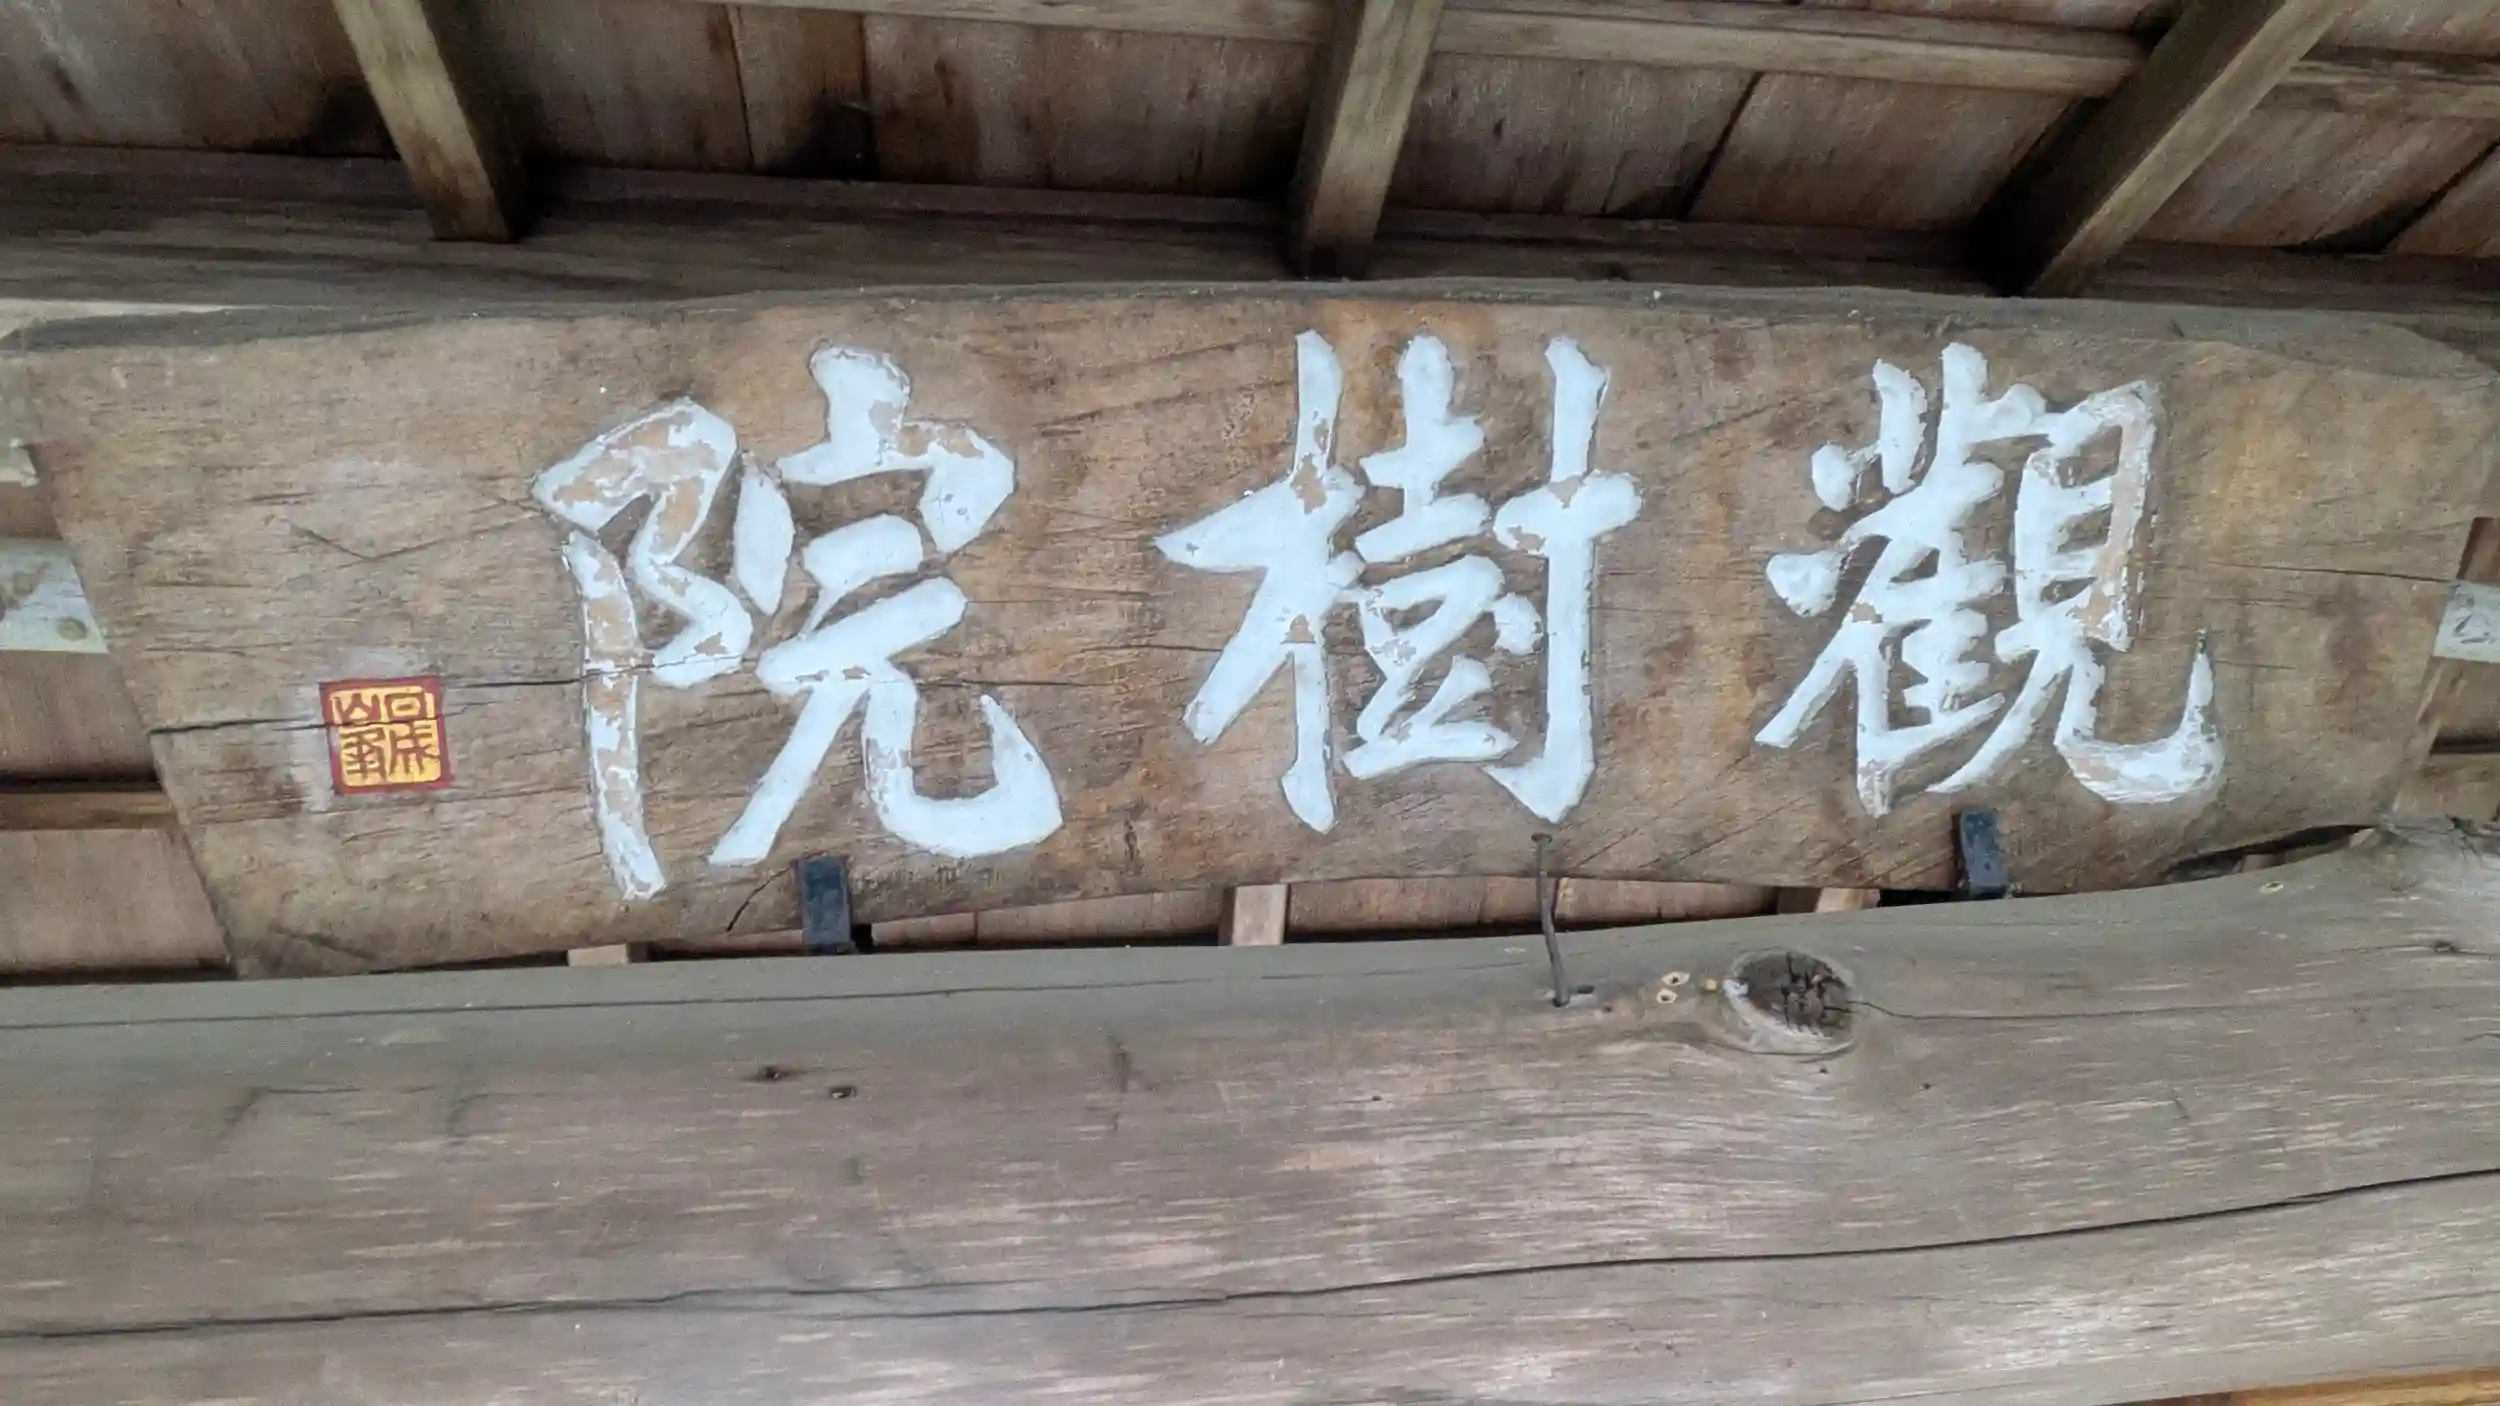 觀樹院